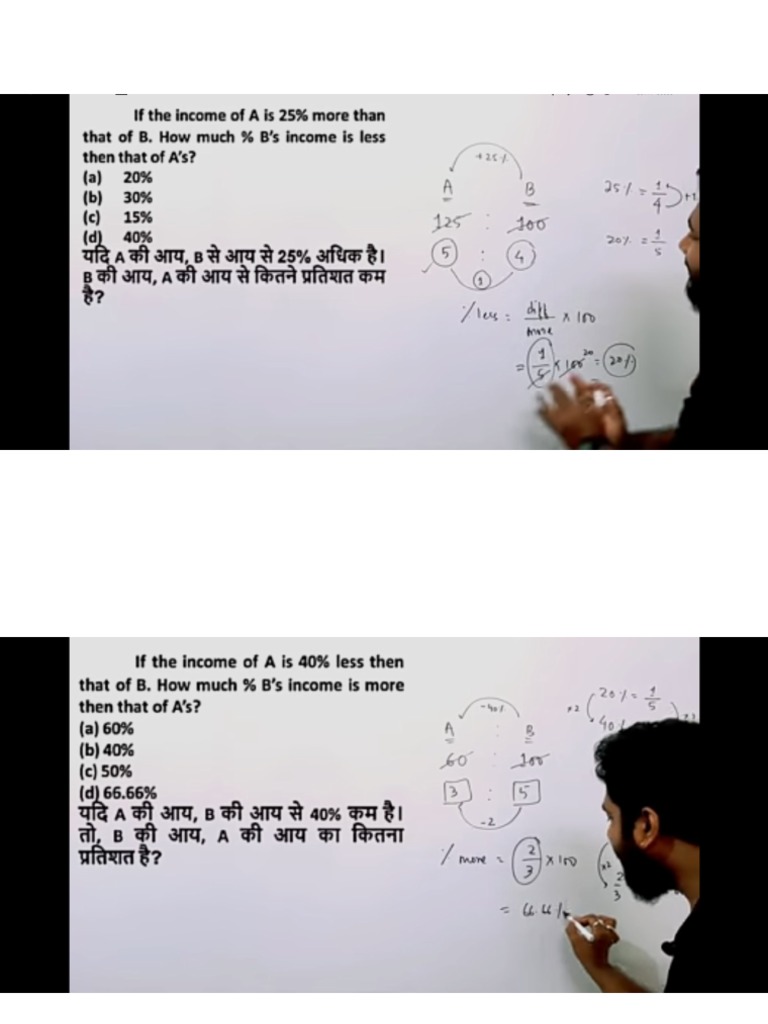 If the income of A is 25% more than
that of B. How much % B's income is less
then that of A's?
(a) 20%
(b) 30%
(c) 15%
(d) 40%
यदि A की आय, B से आय से 25% अधिक है।
B की आय, A की आय से कितने प्रतिशत कम
है?
+25%
A B
125 : 100
5 : 4
1
% less = diff/more × 100
= 1/5 × 100 20 = 20%
25% = 1/4 +1
20% = 1/5
If the income of A is 40% less then
that of B. How much % B's income is more
then that of A's?
(a) 60%
(b) 40%
(c) 50%
(d) 66.66%
यदि A की आय, B की आय से 40% कम है।
तो, B की आय, A की आय का कितना
प्रतिशत है?
-40%
A : B
60 : 100
3 : 5
-2
% more = 2/3 × 100
= 66.66%
×2 20% = 1/5
40%
×2
2/3